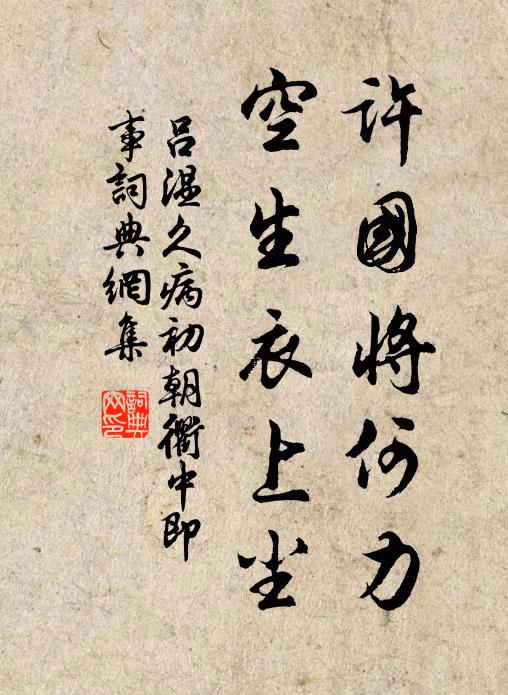 許國將何力
空生衣上尘
呂温久病初朝衢中即
事詞典網集
詞典
网印